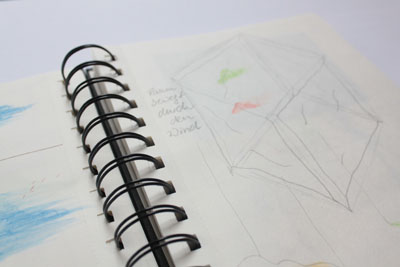 Raum
bewegt
durch
den
Wind